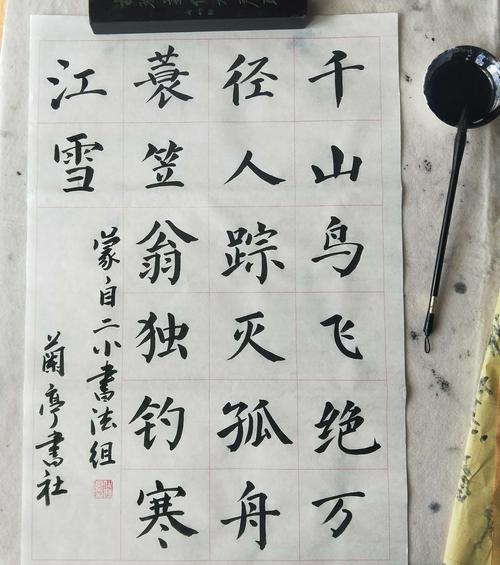 千山鸟飞绝万
径人踪灭孤舟
蓑笠翁独钓寒
江雪
蒙自二小書法组
蘭亭書社